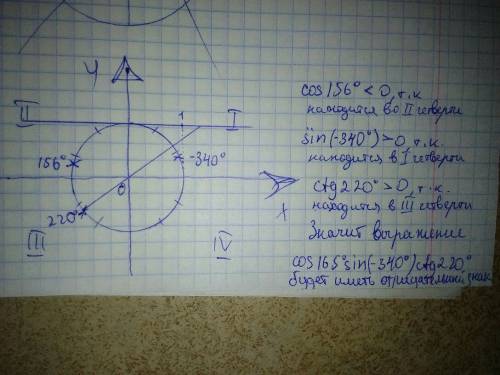 y
II
1
I
156°
-340°
0
220°
x
III
IV
cos 156° < 0, т.к.
находится во II четверти
sin(-340°) > 0, т.к.
находится в I четверти
ctg 220° > 0, т.к.
находится в III четверти
Значит выражение
cos165°sin(-340°)ctg220°
будет иметь отрицательный знак